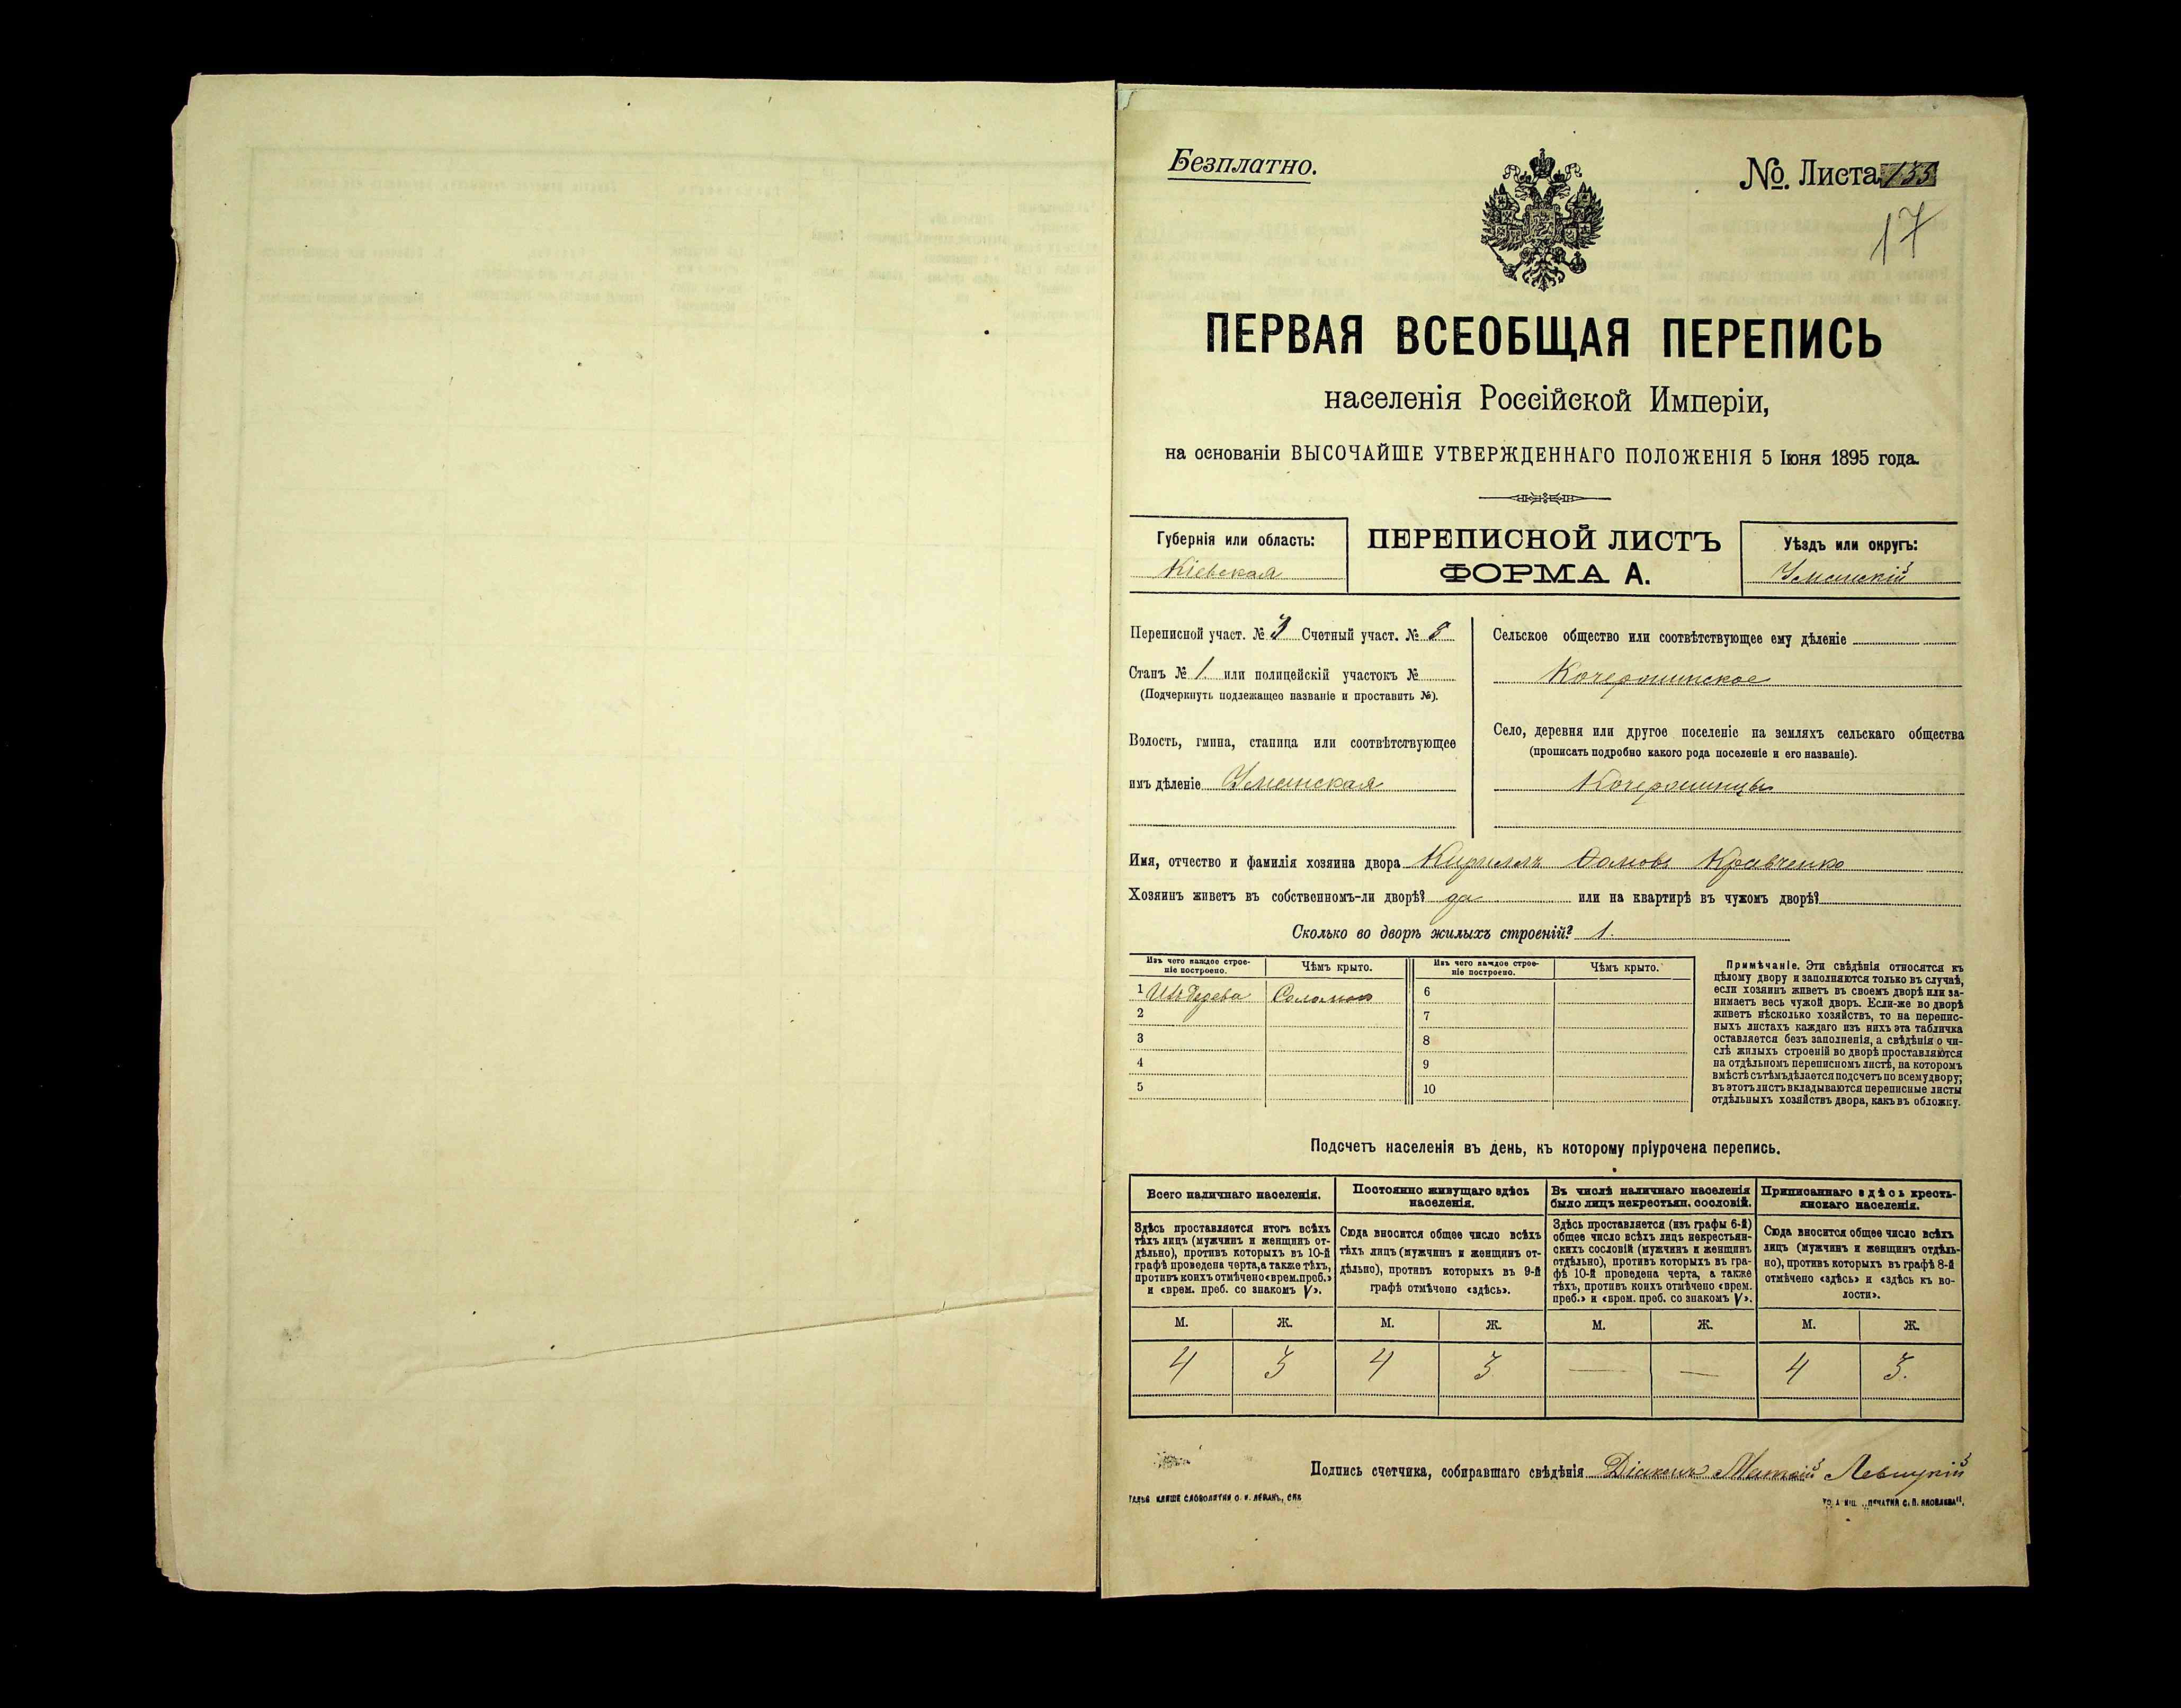 Безплатно.
№. Листа 135
17
ПЕРВАЯ ВСЕОБЩАЯ ПЕРЕПИСЬ
населенія Россійской Имперіи,
на основаніи ВЫСОЧАЙШЕ УТВЕРЖДЕННАГО ПОЛОЖЕНІЯ 5 Іюня 1895 года.
Губернія или область:
Кіевская
ПЕРЕПИСНОЙ ЛИСТЪ
ФОРМА А.
Уѣздъ или округъ:
Уманскій
Переписной участ. № 3 Счетный участ. №
Станъ № 1 или полицейскій участокъ №
(Подчеркнуть подлежащее названіе и проставить №).
Волость, гмина, станица или соотвѣтствующее
имъ дѣленіе Уманская
Сельское общество или соотвѣтствующее ему дѣленіе
Кочержинское
Село, деревня или другое поселеніе на земляхъ сельскаго общества
(прописать подробно какого рода поселеніе и его названіе).
Кочержинцы
Имя, отчество и фамилія хозяина двора Кириллъ Кравченко
Хозяинъ живетъ въ собственномъ-ли дворѣ? да или на квартирѣ въ чужомъ дворѣ?
Сколько во дворѣ жилыхъ строеній? 1.
Изъ чего каждое строе-
ніе построено.
Чѣмъ крыто.
Изъ чего каждое строе-
ніе построено.
Чѣмъ крыто.
1 Изъ дерева Соломою 6
2 7
3 8
4 9
5 10
Примѣчаніе. Эти свѣдѣнія относятся къ
цѣлому двору и заполняются только въ случаѣ,
если хозяинъ живетъ въ своемъ дворѣ или за-
нимаетъ весь чужой дворъ. Если-же во дворѣ
живетъ нѣсколько хозяйствъ, то на перепис-
ныхъ листахъ каждаго изъ нихъ эта табличка
оставляется безъ заполненія, а свѣдѣнія о чи-
слѣ жилыхъ строеній во дворѣ проставляются
на отдѣльномъ переписномъ листѣ, на которомъ
вмѣстѣ съ тѣмъ дѣлается подсчетъ по всему двору;
въ этотъ листъ вкладываются переписные листы
отдѣльныхъ хозяйствъ двора, какъ въ обложку.
Подсчетъ населенія въ день, къ которому пріурочена перепись.
Всего наличнаго населенія.
Здѣсь проставляется итогъ всѣхъ
тѣхъ лицъ (мужчинъ и женщинъ от-
дѣльно), противъ которыхъ въ 10-й
графѣ проведена черта, а также тѣхъ,
противъ коихъ отмѣчено «врем. преб.»
и «врем. преб. со знакомъ V».
Постоянно живущаго здѣсь
населенія.
Сюда вносится общее число всѣхъ
тѣхъ лицъ (мужчинъ и женщинъ от-
дѣльно), противъ которыхъ въ 9-й
графѣ отмѣчено «здѣсь».
Въ числѣ наличнаго населенія
было лицъ некрестьян. сословій.
Здѣсь проставляется (изъ графы 6-й)
общее число всѣхъ лицъ некрестьян-
скихъ сословій (мужчинъ и женщинъ
отдѣльно), противъ которыхъ въ гра-
фѣ 10-й проведена черта, а также
тѣхъ, противъ коихъ отмѣчено «врем.
преб.» и «врем. преб. со знакомъ V».
Приписаннаго здѣсь кресть-
янскаго населенія.
Сюда вносится общее число всѣхъ
лицъ (мужчинъ и женщинъ отдѣль-
но), противъ которыхъ въ графѣ 8-й
отмѣчено «здѣсь» и «здѣсь къ во-
лости».
М. Ж. М. Ж. М. Ж. М. Ж.
4 3 4 3 — — 4 3.
Подпись счетчика, собиравшаго свѣдѣнія Діаконъ Матвій Левицкій